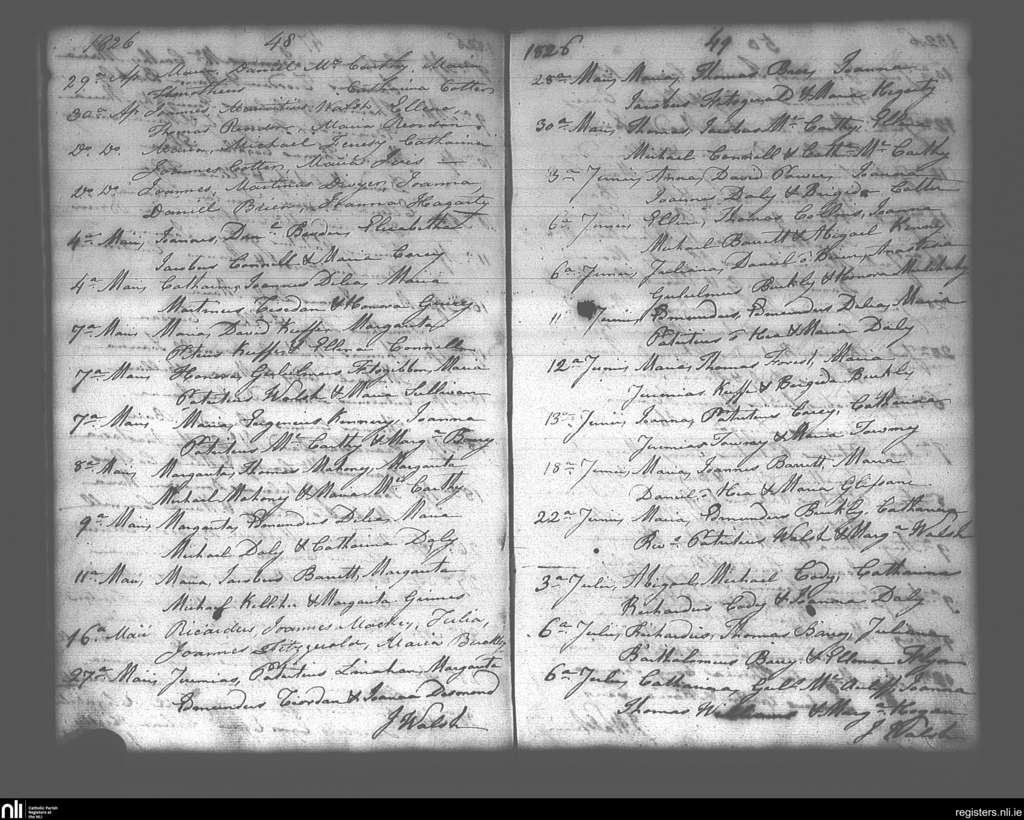 1826 48
29a Ap. Maria, Daniel Mc Carthy, Maria
Timotheus Catharina Cotter
30a Ap. Joannes, Mauritius Walsh, Ellena
Thomas Riordan, Maria Reordan
Do. Do. Maria, Michael Catharina
Joannes Cotter,
Do. Do. Joannes, Martinus Dwyer, Joanna,
Daniel Brien, Hanna Hagarty
4a Maii, Danl. Elizabetha
Jacobus Connell & Maria Carey
4a Maii, Catharina, Joannes Dilea, Maria
Martinus Riordan & Honora
7a Maii Maria, David Kieffe, Margarita
Petrus Kieffe & Ellena Connell
7a Maii Honora, Gulielmus Fitzgibbon, Maria
Patritius Walsh & Maria Sullivan
7a Maii, Maria, Eugenius Joanna
Patritius Mc Carthy & Marga Barry
8a Maii, Margarita, Thomas Mahony, Margarita
Michael Mahony & Maria Mc Carthy
9a Maii, Margarita, Edmundus Dilea, Maria
Michael Daly & Catharina Daly
11a Maii, Maria, Jacobus Barrett, Margarita
Michael & Margarita Grimes
16a Maii Ricardus, Joannes Mackey, Julia,
Joannes Fitzgerald, Maria Buckly
27a Maii, Jeremias, Patritius Linahan, Margarita
Edmundus Riordan & Joanna Desmond
J Walsh
1826 49
28a Maii, Maria, Thomas Barry Joanna
Jacobus Fitzgerald & Maria Hegarty
30a Maii, Thomas, Jacobus Mc Carthy, Ellena
Michael Connell & Catha Mc Carthy
3a Junii, Anna, David Power, Joanna
Joanna Daly & Brigida Cotter
6a Junii Ellena, Thomas Collins, Joanna
Michael Barrett & Abigail
6a Junii, Juliana, Daniel o Brien, Anastasia
Gulielmus Buckly & Honora
11 Junii, Edmundus, Edmundus Dilea, Maria
Patritius o Hea & Maria Daly
12a Junii Maria, Thomas Maria
Jeremias Kieffe & Brigida Buckly
13a Junii Joanna, Patritius Carey, Catharina
Jeremias Towney & Maria Towney
18a Junii, Maria, Joannes Barrett, Maria
Daniel o Hea & Maria Gleasane
22a Junii, Maria, Edmundus Buckly, Catharina
Revd. Patritius Walsh & Marga Walsh
3a Julii, Abigal, Michael Cody, Catharina
Richardus Cody & Joanna Daly
6a Julii, Richardus, Thomas Barry, Juliana
Bartholomeus Barry & Ellena Flyn
6a Julii, Catharina, Gull Mc Auliff, Joanna
Thomas Williams & Marga Hogan
J Walsh
nli
Catholic Parish
Registers at
the NLI
registers.nli.ie